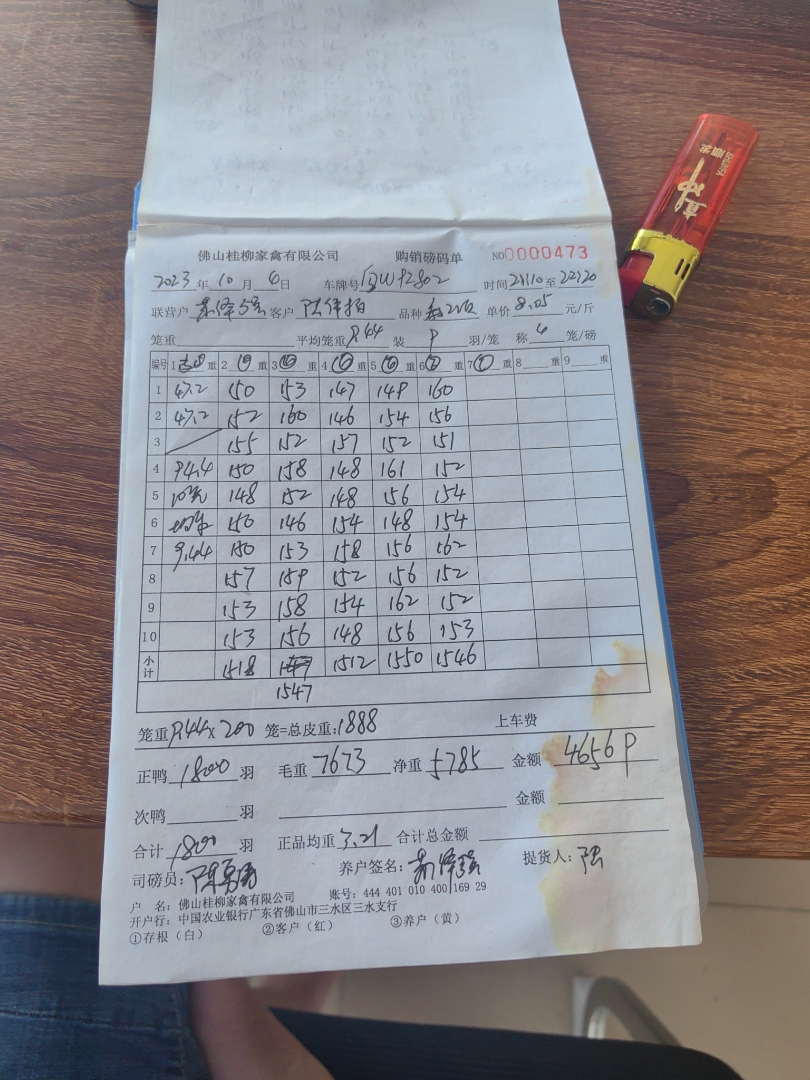 佛山桂柳家禽有限公司 购销磅码单 NO0000473
2023年10月6日 车牌号 W92802 时间21:10至22:20
联营户 客户 品种 单价8.05元/斤
笼重 平均笼重9.44 装9羽/笼 称4笼/磅
编号 1 重 2 重 3 重 4 重 5 重 6 重 7 重 8 重 9 重
1 47.2 150 153 147 149 160
2 47.2 152 160 146 154 156
3 155 152 157 152 151
4 94.4 150 158 148 161 152
5 10笼 148 152 148 156 154
6 150 146 154 148 154
7 9.44 150 153 158 156 162
8 157 159 152 156 152
9 153 158 154 162 152
10 153 156 148 156 153
小计 1518 1512 1550 1546
1547
笼重9.44×200笼=总皮重:1888 上车费
正鸭1800羽 毛重7673 净重5785 金额46569
次鸭 羽 金额
合计1800羽 正品均重3.21 合计总金额
司磅员: 养户签名: 提货人:
户 名:佛山桂柳家禽有限公司 账号:444 401 010 400 169 29
开户行:中国农业银行广东省佛山市三水区三水支行
①存根(白) ②客户(红) ③养户(黄)
真冲
顺发